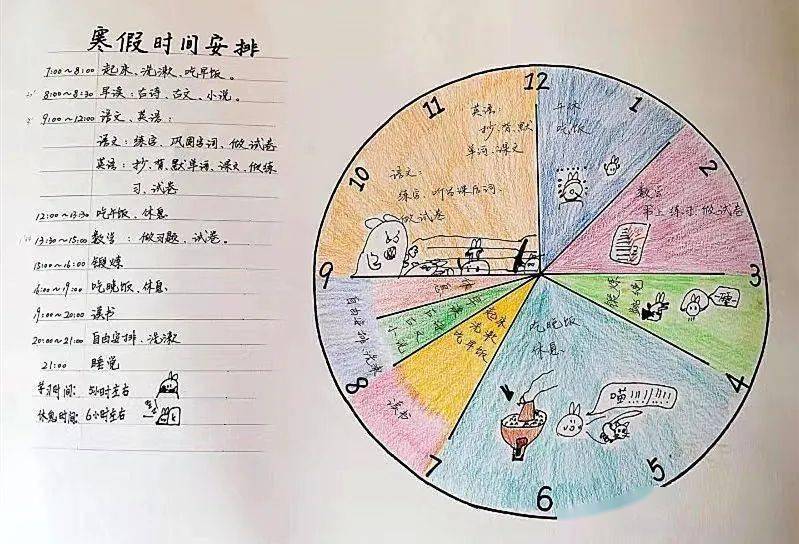 寒假时间安排
7:00~8:00 起来、洗漱、吃早饭。
8:00~8:30 早读:古诗、古文、小说。
9:00~12:00 语文、英语:
语文:练字、巩固字词、做试卷
英语:抄、背、默单词、课文、做练
习、试卷
12:00~13:30 吃午饭、休息
13:30~15:00 数学:做习题、试卷。
15:00~16:00 锻炼
16:00~19:00 吃晚饭、休息
19:00~20:00 读书
20:00~21:00 自由安排、洗漱
21:00 睡觉
学习时间: 5小时左右
休息时间: 6小时左右
12
1
2
3
4
5
6
7
8
9
10
11
英语:
抄、背、默
单词、课文
语文:
练字、
做试卷
午休
吃饭
数学
练习、做试卷
锻炼
吃晚饭
休息
喵!!!!!!
起来
洗漱
吃早饭
早读
古诗
古文
小说
读书
自由安排、洗漱